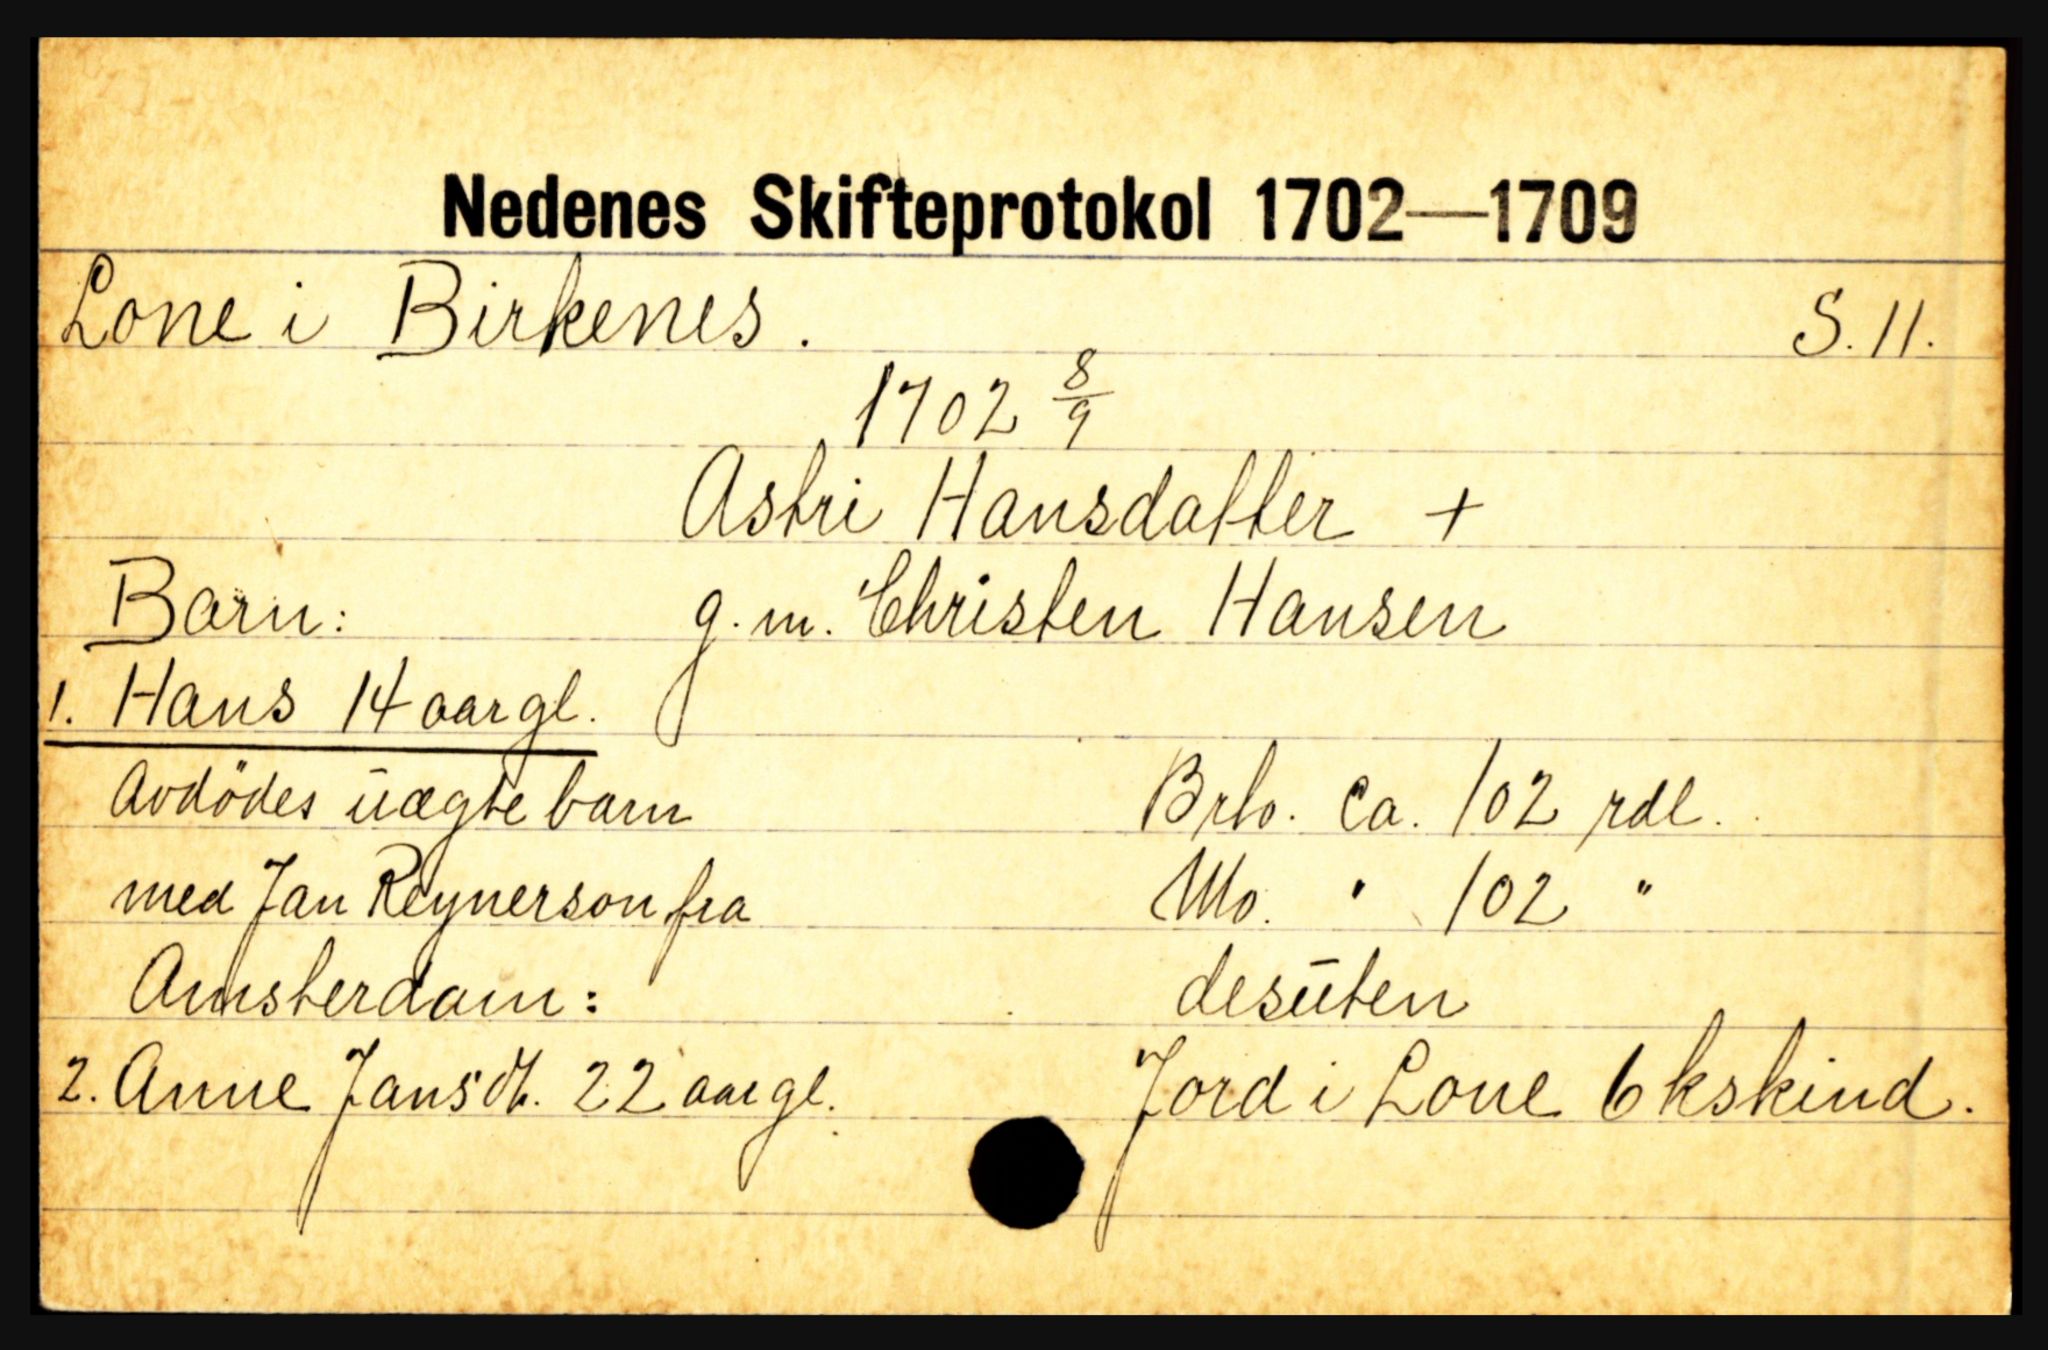 Nedenes Skifteprotokol 1702—1709
Lone i Birkenes. S. 11.
1702 8/9
Astri Hansdatter +
Barn: g. m. Christen Hansen
1. Hans 14 aar gl.
Avdödes uægte barn Brto. ca. 102 rdl.
med Jan Reynerson fra No. " 102 "
Amsterdam: desuten
2. Anne Jansdt. 22 aar gl. Jord i Lone 6 kskind.